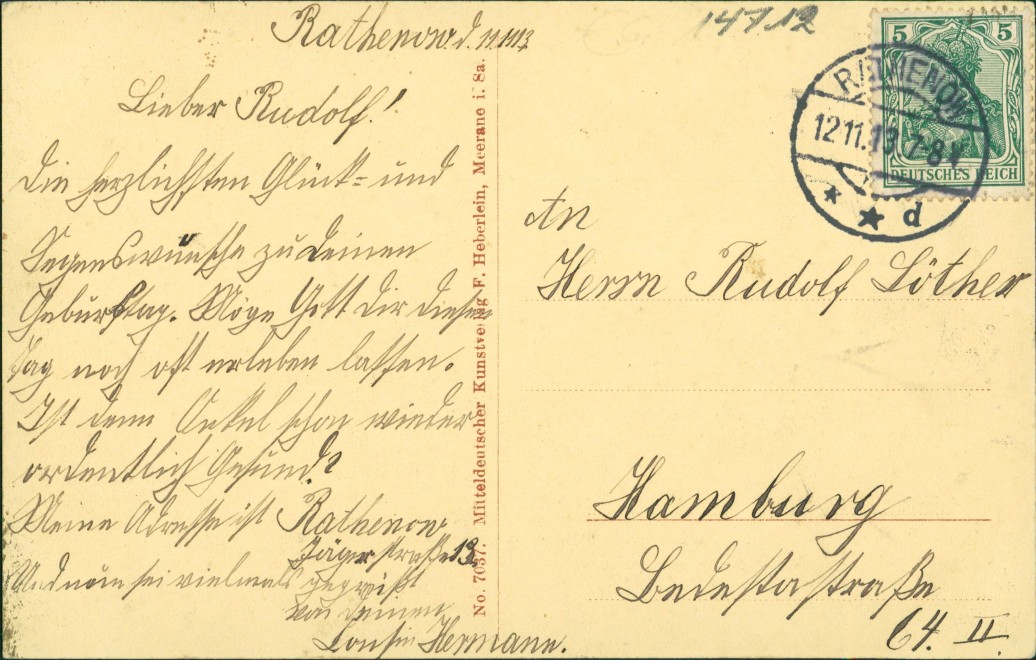 Rathenow d. 12.11.13
Lieber Rudolf!
Die herzlichsten Glück= und
Segenswünsche zu Deinen
Geburtstag. Möge Gott Dir diesen
Tag noch oft erleben lassen.
Ist denn Onkel schon wieder
ordentlich Gesund?
Meine Adresse ist Rathenow
Jägerstraße 13.
Und nun sei vielmals gegrüßt
von Deinen
Cousin Hermann.
No. 7037. Mitteldeutscher Kunstverlag F. Heberlein, Meerane i. Sa.
14712
5 5
DEUTSCHES REICH
RATHENOW
12.11.13. 7-8 V.
* * d
An
Herrn Rudolf Löther
Hamburg
Bedestastraße
64. II.